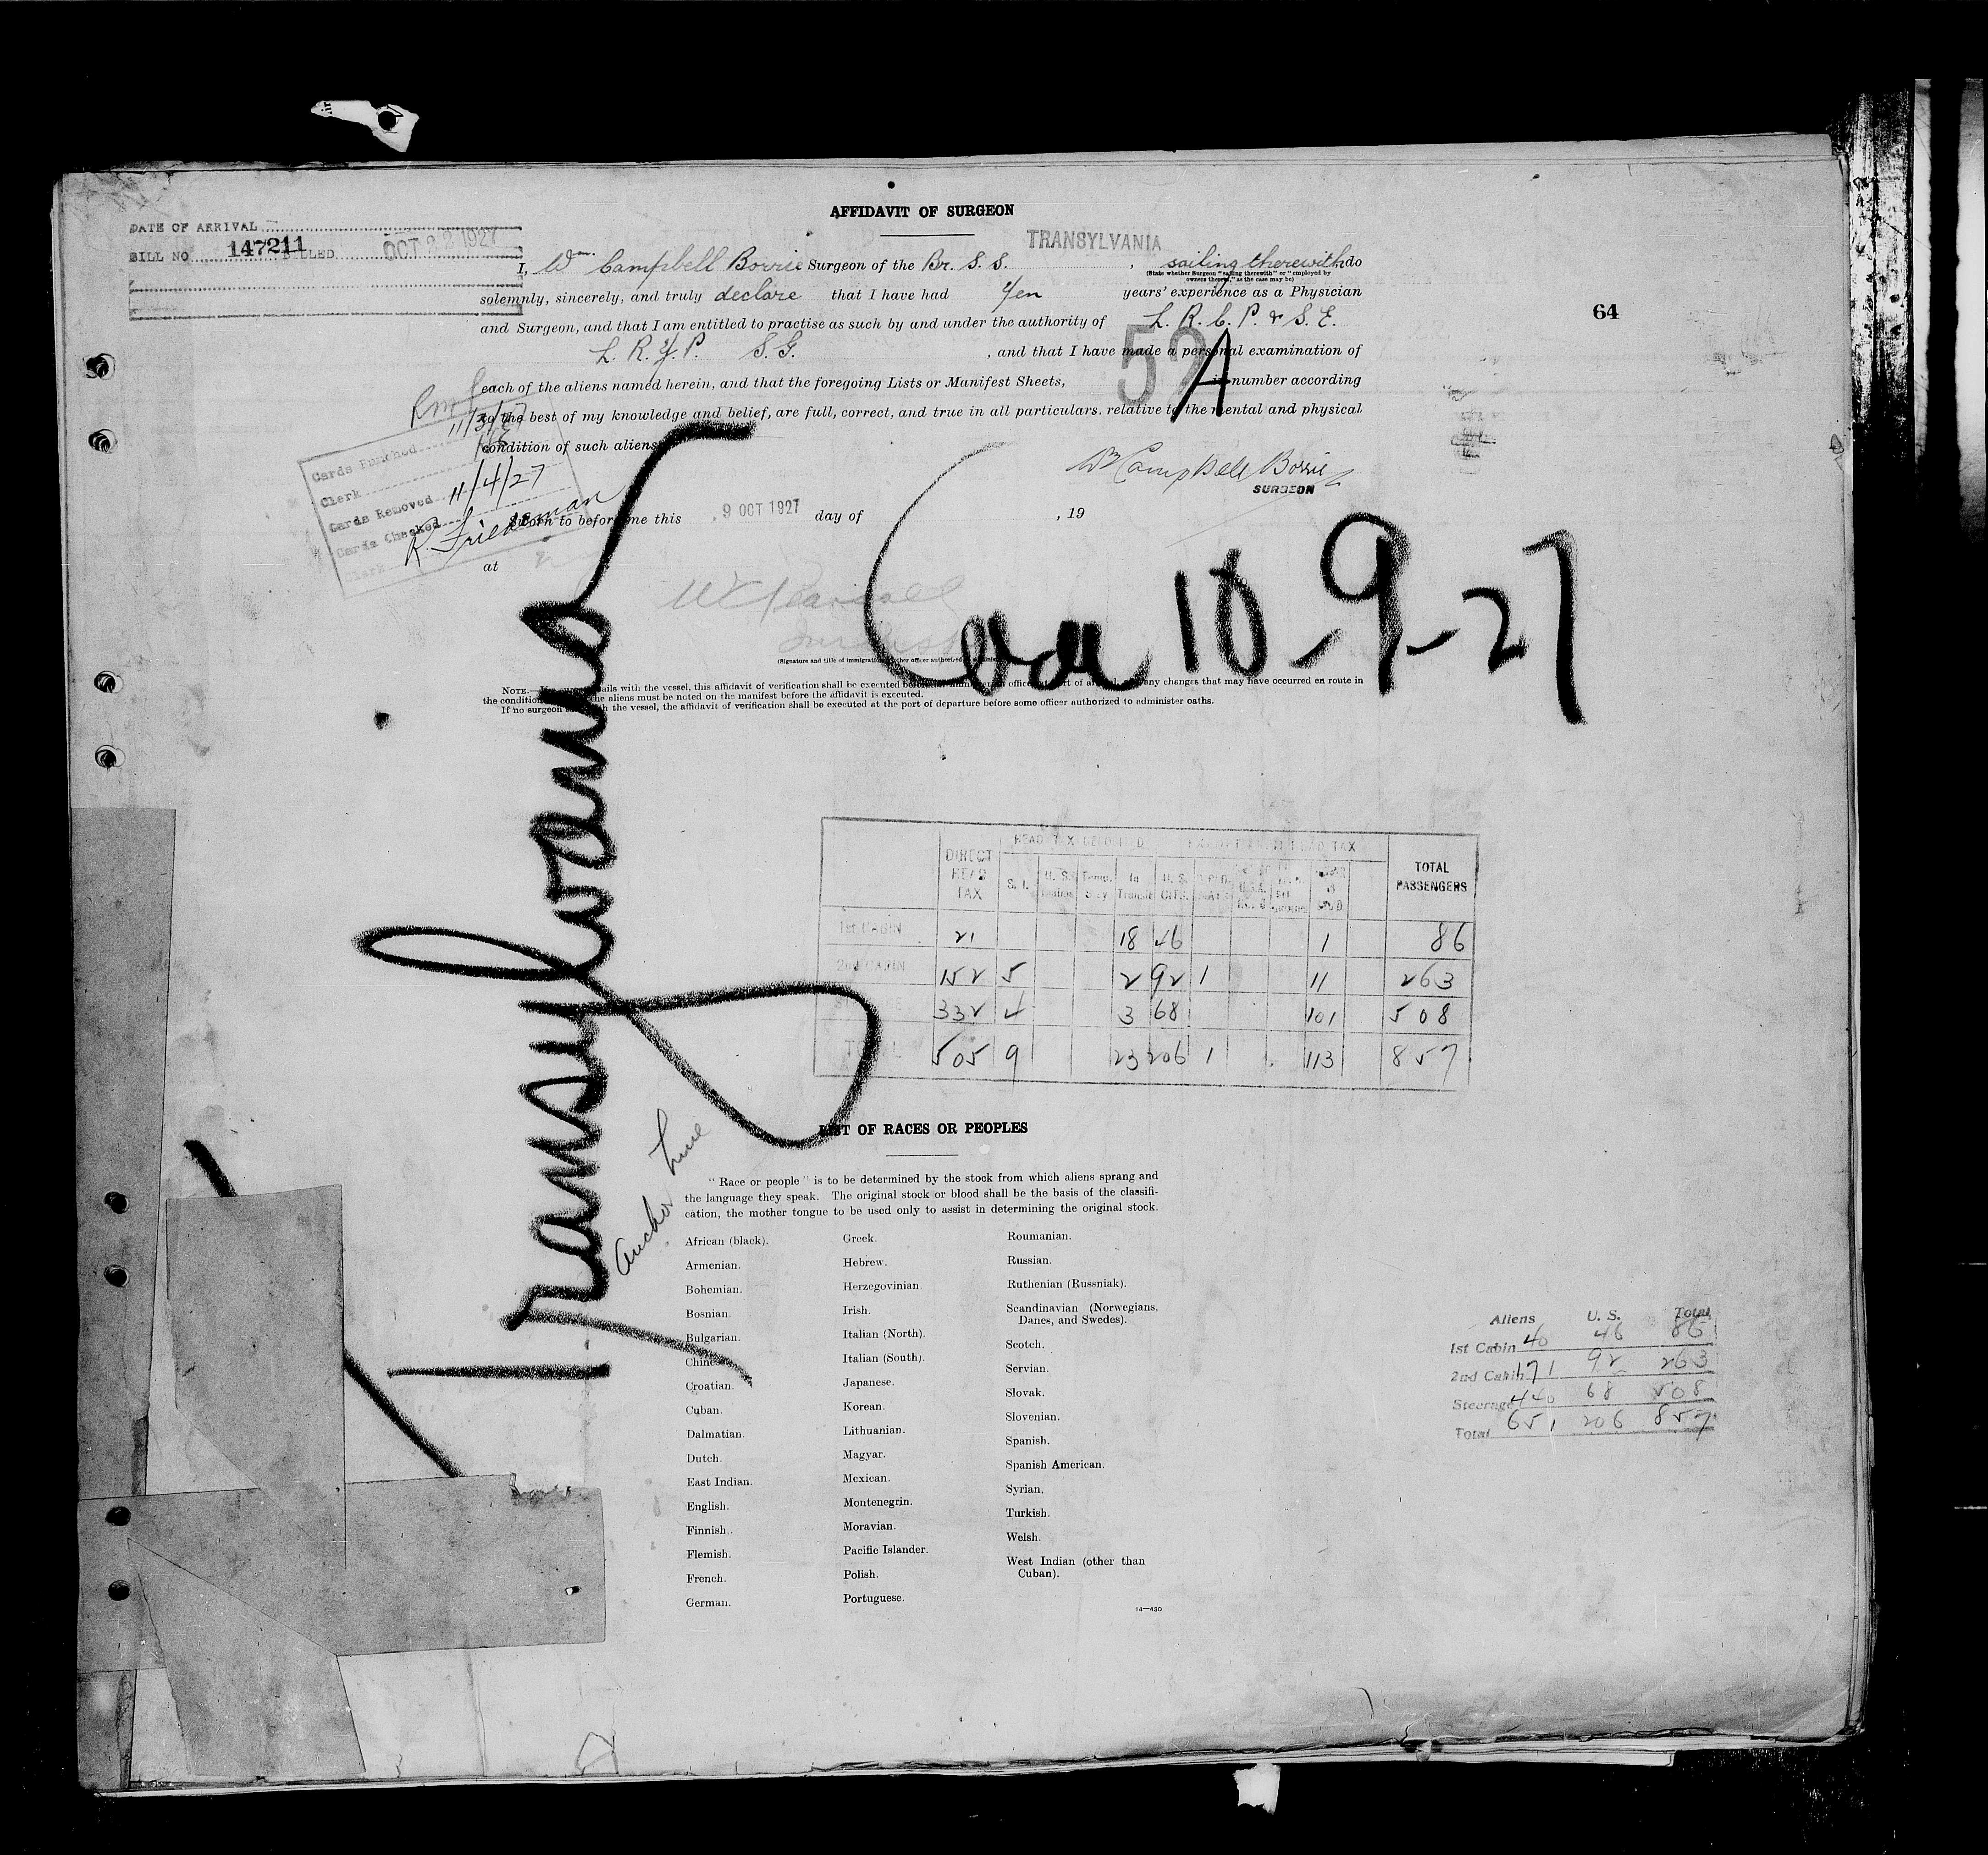 AFFIDAVIT OF SURGEON
DATE OF ARRIVAL
BILL NO. 147211 BILLED OCT 22 1927
TRANSYLVANIA
I, Wm. Campbell Borrie Surgeon of the Br. S. S. , sailing therewith do
(State whether Surgeon "sailing therewith" or "employed by
owners thereof," as the case may be)
solemnly, sincerely, and truly declare that I have had Ten years' experience as a Physician
64
and Surgeon, and that I am entitled to practise as such by and under the authority of L. R. C. P. & S. E.
L. R. F. P. S. G. , and that I have made a personal examination of
each of the aliens named herein, and that the foregoing Lists or Manifest Sheets, 52A in number according
to the best of my knowledge and belief, are full, correct, and true in all particulars, relative to the mental and physical
condition of such aliens
Cards Punched 11/3/27
Clerk
Cards Removed 11/4/27
Cards Checked
R. Friedman
Clerk
Wm Campbell Borrie
SURGEON
Sworn to before me this 9 OCT 1927 day of , 19
at
Cara 10-9-27
(Signature and title of immigration other officer authorized
NOTE.— ails with the vessel, this affidavit of verification shall be executed office any changes that may have occurred en route in
the condition the aliens must be noted on the manifest before the affidavit is executed.
If no surgeon the vessel, the affidavit of verification shall be executed at the port of departure before some officer authorized to administer oaths.
Transylvania
Anchor Line
DIRECT HEAD TAX S. I. Temp. Stay In Transit U. S. CITS. TOTAL PASSENGERS
1st CABIN 21 18 46 1 86
2nd CABIN 152 5 2 92 1 11 263
332 4 3 68 101 508
TOTAL 505 9 23 206 1 113 857
LIST OF RACES OR PEOPLES
"Race or people" is to be determined by the stock from which aliens sprang and
the language they speak. The original stock or blood shall be the basis of the classifi-
cation, the mother tongue to be used only to assist in determining the original stock.
African (black).
Armenian.
Bohemian.
Bosnian.
Bulgarian.
Chinese.
Croatian.
Cuban.
Dalmatian.
Dutch.
East Indian.
English.
Finnish.
Flemish.
French.
German.
Greek.
Hebrew.
Herzegovinian.
Irish.
Italian (North).
Italian (South).
Japanese.
Korean.
Lithuanian.
Magyar.
Mexican.
Montenegrin.
Moravian.
Pacific Islander.
Polish.
Portuguese.
Roumanian.
Russian.
Ruthenian (Russniak).
Scandinavian (Norwegians,
Danes, and Swedes).
Scotch.
Servian.
Slovak.
Slovenian.
Spanish.
Spanish American.
Syrian.
Turkish.
Welsh.
West Indian (other than
Cuban).
14—430
Aliens U. S. Total
1st Cabin 40 46 86
2nd Cabin 171 92 263
Steerage 440 68 508
Total 651 206 857